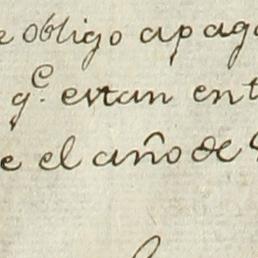 e obligo apaga
q.e estan ent
e el año de